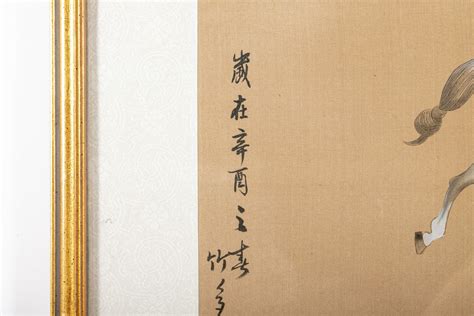 歲在辛酉之春
竹多